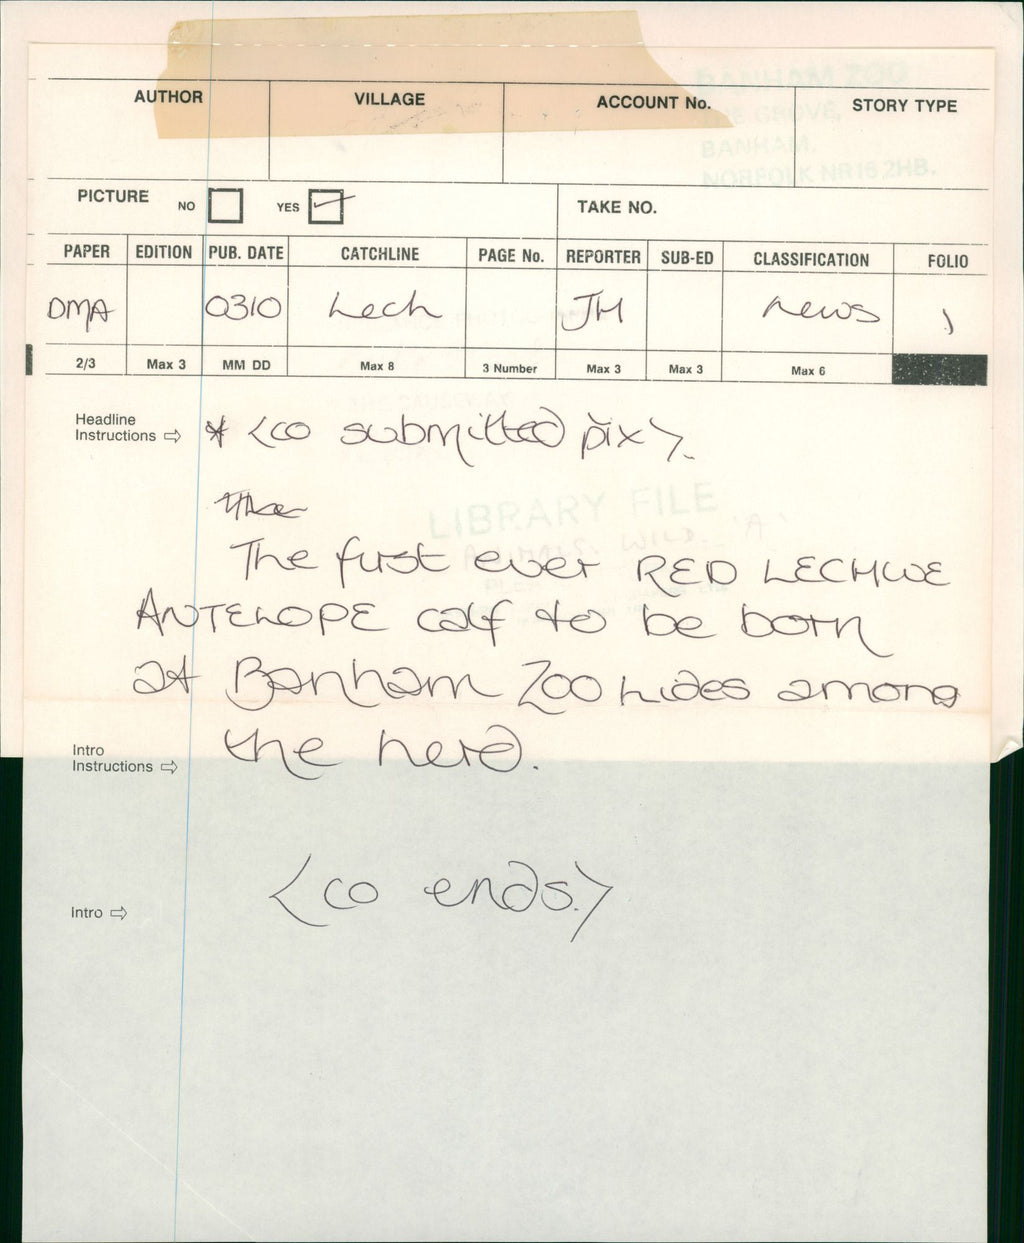 BANHAM ZOO
THE GROVE,
BANHAM,
NORFOLK NR16 2HB.
AUTHOR VILLAGE ACCOUNT No. STORY TYPE
PICTURE NO YES TAKE NO.
PAPER EDITION PUB. DATE CATCHLINE PAGE No. REPORTER SUB-ED CLASSIFICATION FOLIO
DMA 0310 Lech JH news 1
2/3 Max 3 MM DD Max 8 3 Number Max 3 Max 3 Max 6
Headline
Instructions ⇨ * <co submitted pix>.
LIBRARY FILE
ANIMALS: WILD - 'A'
The first ever RED LECHWE
ANTELOPE calf to be born
at Banham Zoo hides among
the herd.
Intro
Instructions ⇨
<co ends.>
Intro ⇨